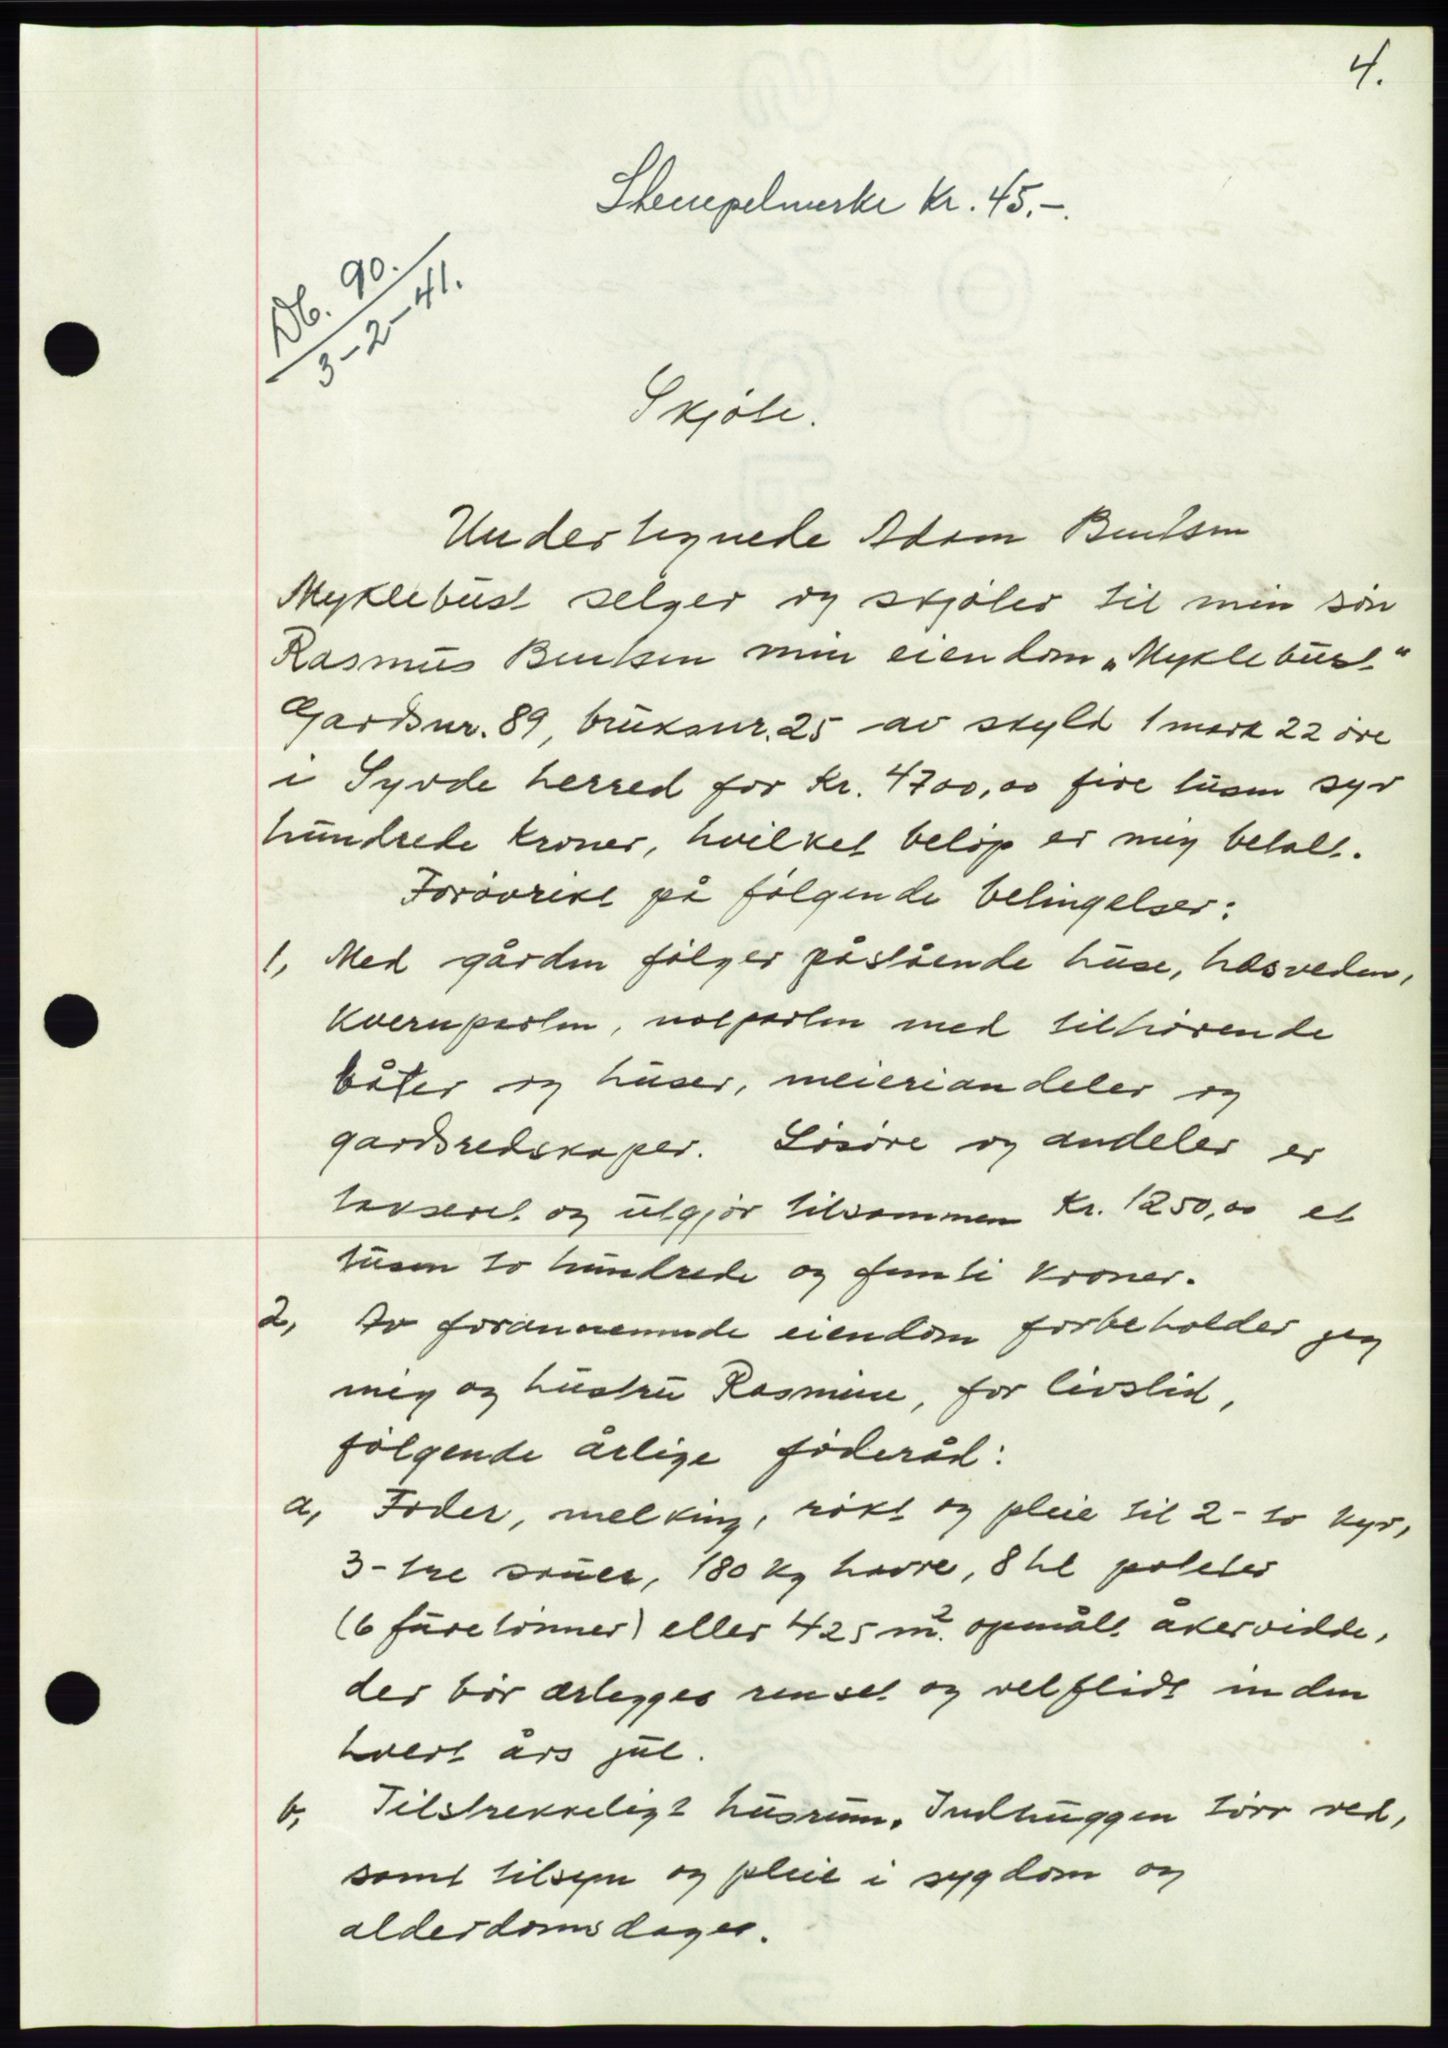 4.
Stempelmerke Kr. 45.-.
Db. 90.
3-2-41.
Skjöte.
Undertegnede Adam Bentsen
Myklebust selger og skjöter til min sön
Rasmus Bentsen min eiendom „Myklebust“
Gardsnr. 89, bruksnr. 25 av skyld 1 mark 22 öre
i Syvde herred for kr. 4700,00 fire tusen syv
hundrede kroner, hvilket belöp er mig betalt.
Forövrikt på fölgende betingelser:
1, Med gården fölger påstående huse, hasveden,
kvernparten, notparten med tilhörende
båter og huser, meieriandeler og
gardsredskaper. Lösöre og andeler er
takseret og utgjör tilsammen Kr. 1250,00 et
tusen to hundrede og femti kroner.
2, Av forannemnde eiendom forbeholder jeg
mig og hustru Rasmine, for livstid,
fölgende årlige föderåd:
a, Foder, melking, rökt og pleie til 2- to kyr,
3- tre sauer, 180 kg havre, 8 hl poteter
(6 füretönner) eller 425 m². opmålt åkervidde,
der bör erlegges renset og velflidt inden
hvert års jul.
b, Tilstrekkeligt husrum. Indhuggen törr ved,
samt tilsyn og pleie i sygdom og
alderdomsdager.